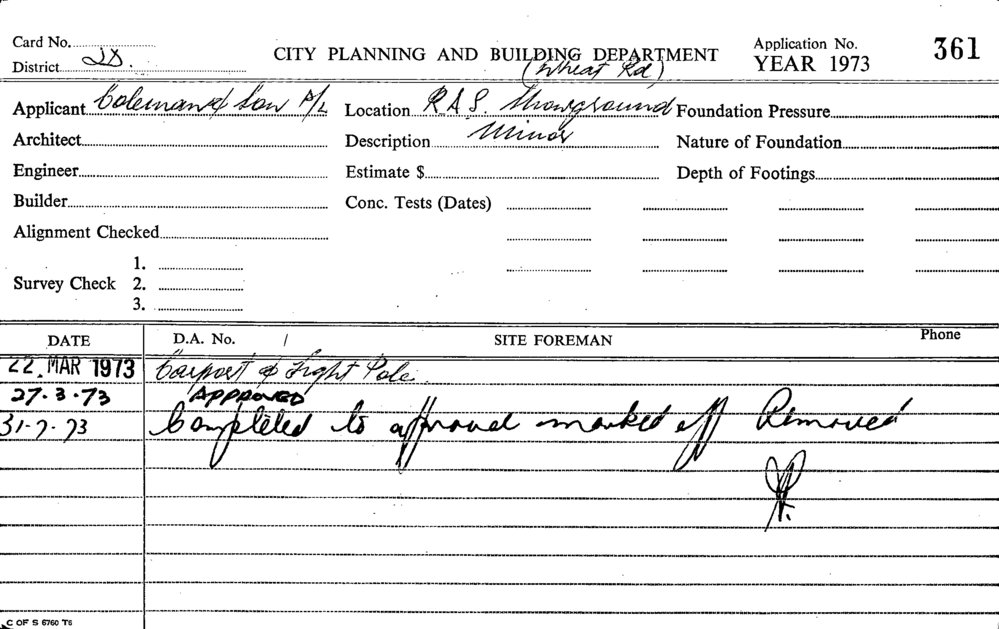 Card No. CITY PLANNING AND BUILDING DEPARTMENT Application No. 361
District (Wheat Rd) YEAR 1973
Applicant Coleman & Son P/L Location R.A.S. Showground Foundation Pressure
Architect Description Minor Nature of Foundation
Engineer Estimate $ Depth of Footings
Builder Conc. Tests (Dates)
Alignment Checked
1.
Survey Check 2.
3.
DATE D.A. No. / SITE FOREMAN Phone
22 MAR 1973 Carport & Light Pole.
27.3.73 APPROVED
31-7-73 Completed to approval marked off Removed
C OF S 6760 T6